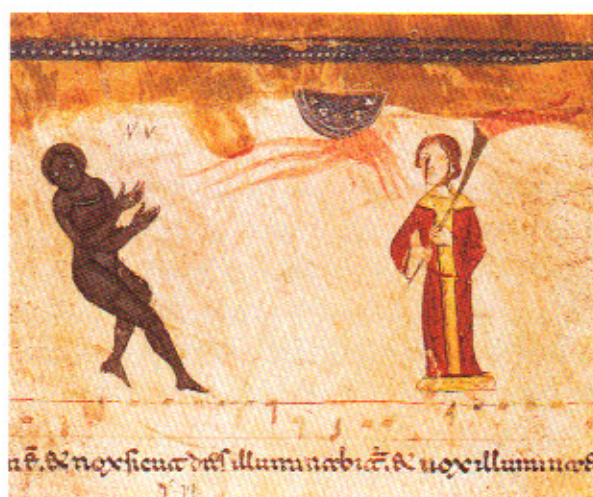 ē. & nox sicut dies illuminabit̄. & nox illuminat